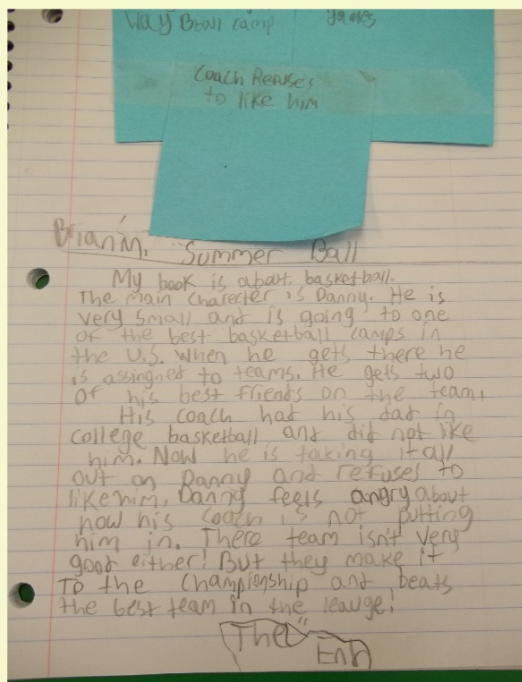 way Bball camp
games
Coach Refuses
to like him
Brian M. Summer Ball
My book is about basketball.
The main Charecter is Danny. He is
very small and is going to one
of the best basketball camps in
the U.S. when he gets there he
is assingned to teams. He gets two
of his best friends on the team.
His coach had his dad in
college basketball and did not like
him. Now he is taking it all
out on Danny and refuses to
like him. Danny feels angry about
how his coach is not putting
him in. There team isn't very
good either! But they make it
to the Championship and beats
the best team in the leauge!
The
End